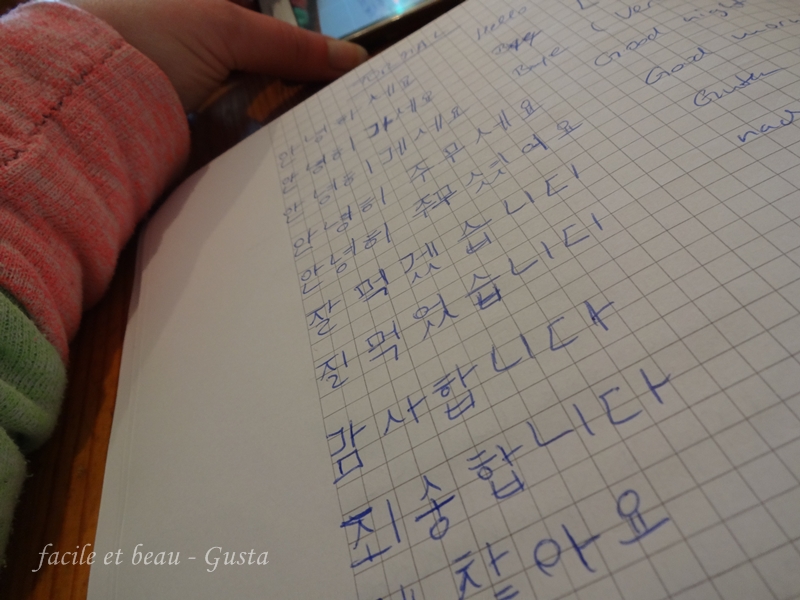 Hello
안녕하세요 Bye
안녕히 가세요 Bye (Ver
안녕히 게세요 Good night
안녕히 주무세요 Good morn
안녕히 주무셨어요 Guten
잘 먹겠습니다 nach
잘 먹었습니다
감사합니다
죄송합니다
찮아요
facile et beau - Gusta